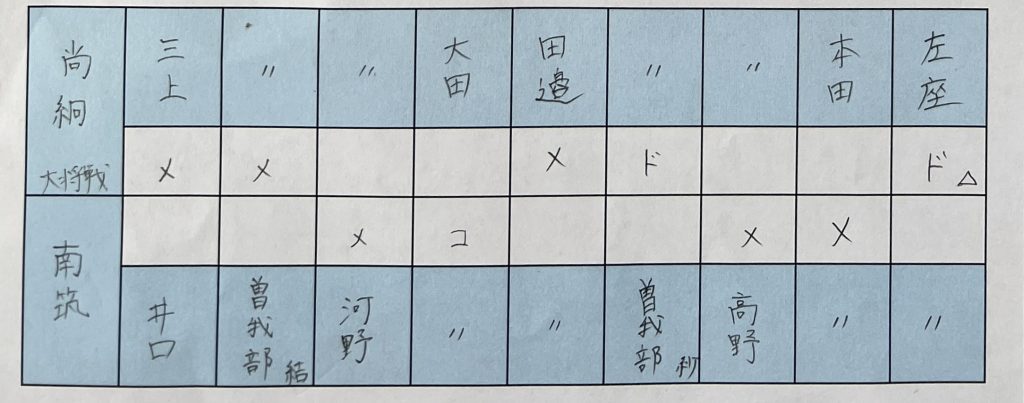 尚絅 三上 〃 〃 大田 田邉 〃 〃 本田 左座
大将戦 メ メ メ ド ド △
メ コ メ メ
南筑 井口 曽我部 結 河野 〃 〃 曽我部 紗 高野 〃 〃